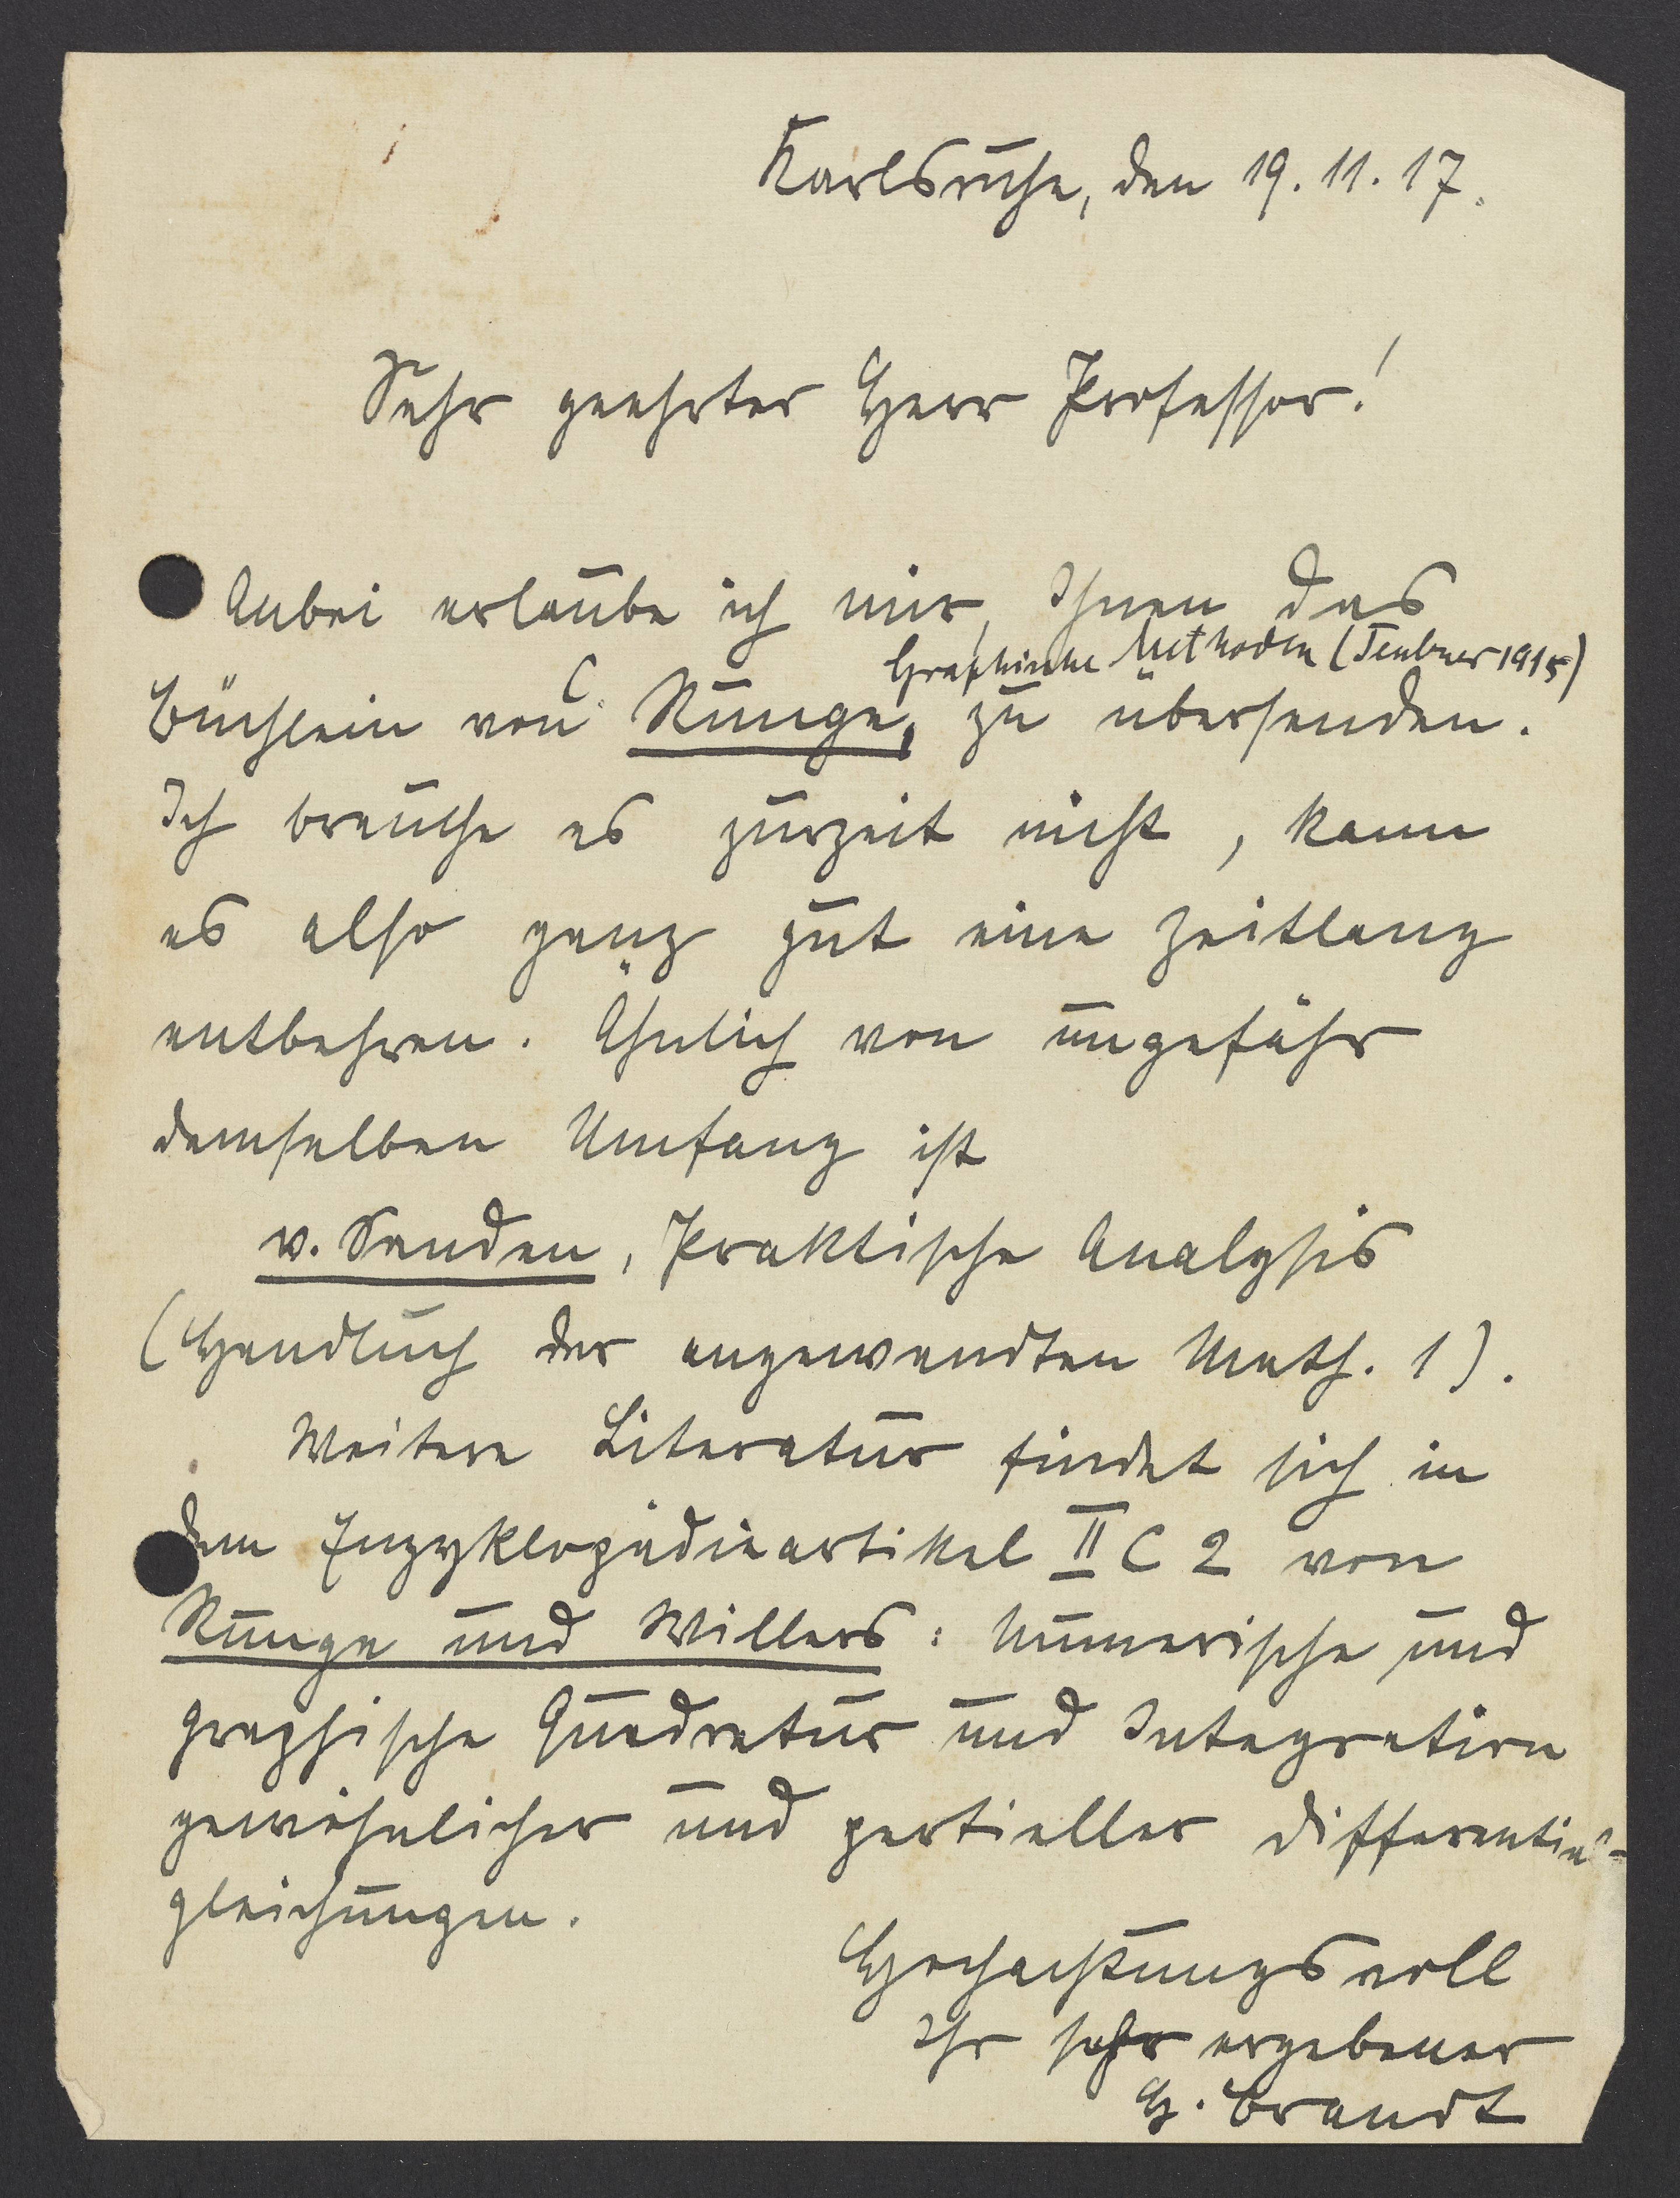 Karlsruhe, den 19. 11. 17.
Sehr geehrter Herr Professor!
Anbei erlaube ich mir, Ihnen das
Graphische Methoden (Teubner 1915)
Büchlein von C. Runge, zu übersenden.
Ich brauche es zurzeit nicht, kann
es also ganz gut eine Zeitlang
entbehren. Ähnlich von ungefähr
demselben Umfang ist
v. Sanden, Praktische Analysis
(Handbuch der angewandten Math. 1).
Weitere Literatur findet sich in
dem Enzyklopädieartikel II C 2 von
Runge und Willers: Numerische und
graphische Quadratur und Integration
gewöhnlicher und partieller Differential-
gleichungen.
Hochachtungsvoll
Ihr sehr ergebener
H. Brandt